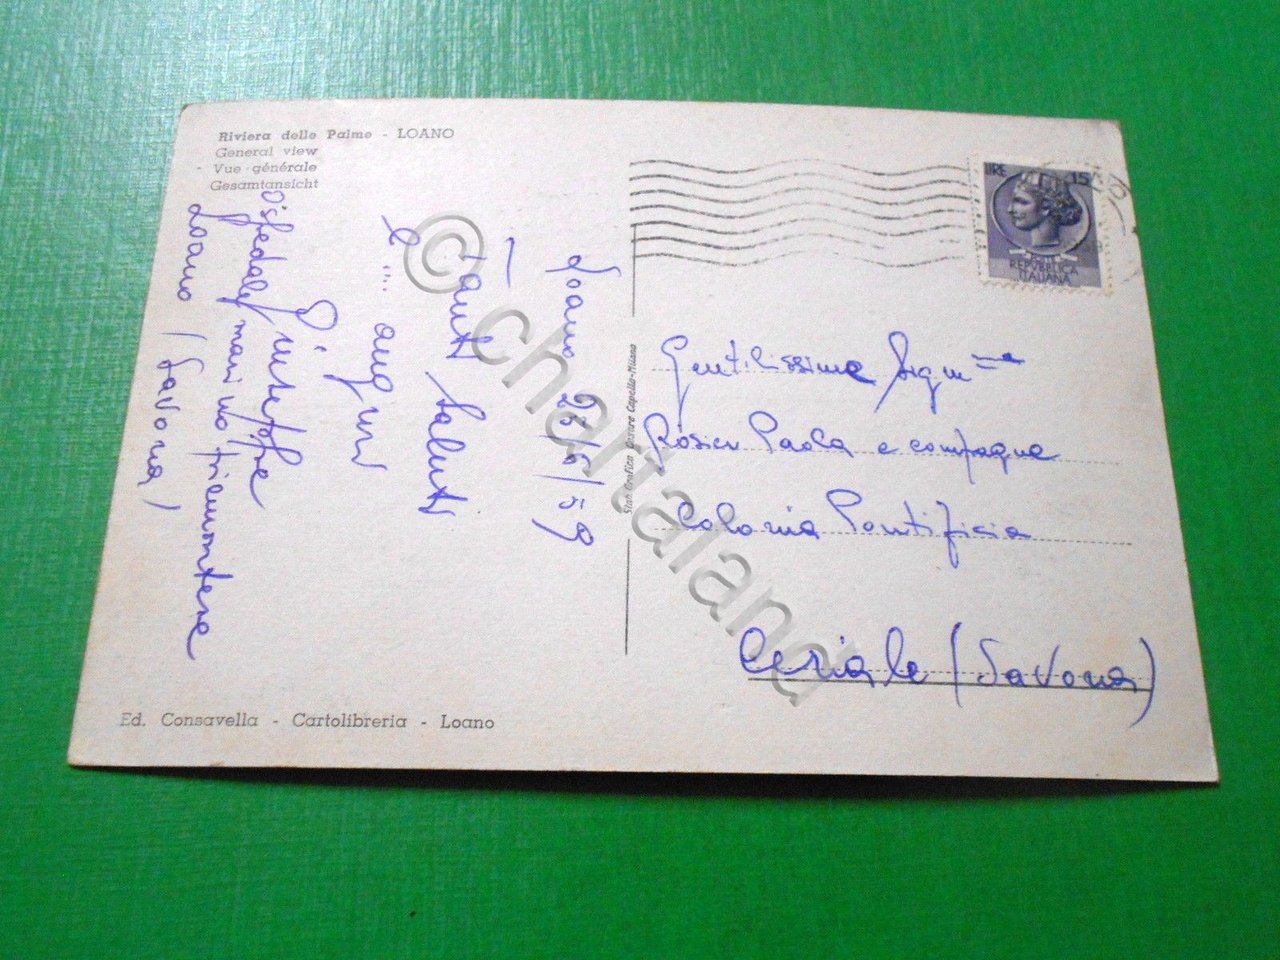 Riviera delle Palme - LOANO
General view
Vue générale
Gesamtansicht
Loano 25/6/59
Tanti saluti
e.... auguri
Ospedale marino piemontese
Loano (Savona)
Ed. Consavella - Cartolibreria - Loano
Stab. Grafico Cesare Capello-Milano
LIRE 15
REPUBBLICA
ITALIANA
Gentilissime Sign
Rosier Paola e compagne
Colonia Pontificia
Ceriale (Savona)
© chartaland